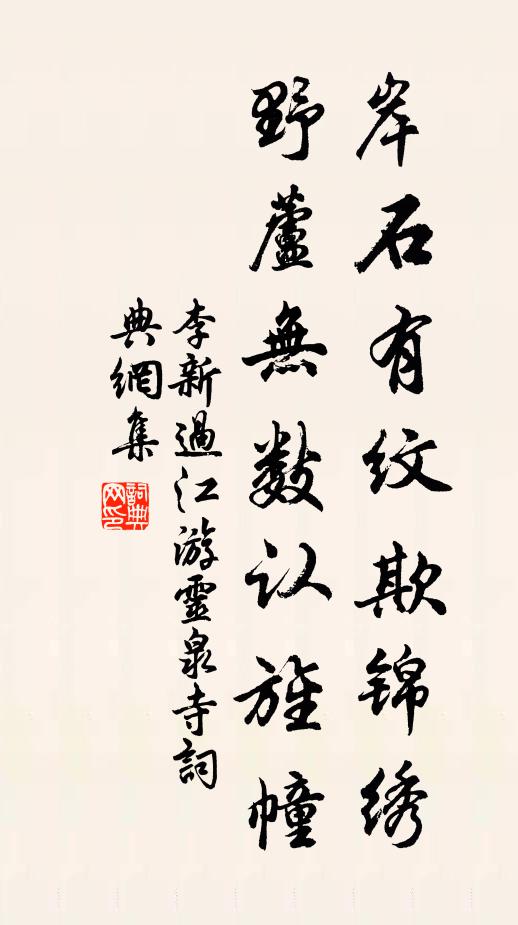 岸石有纹欺锦绣
野蘆無数认旌幢
李新過江游靈泉寺詞
典網集
詞典
网印